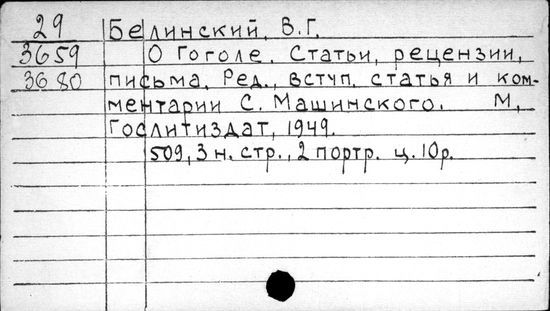 29 Белинский, В.Г.
3659 О Гоголе. Статьи, рецензии,
3680 письма. Ред., вступ. статья и ком-
ментарии С. Машинского. М,
Гослитиздат, 1949.
509, 3 н. стр., 2 портр. ц. 10р.